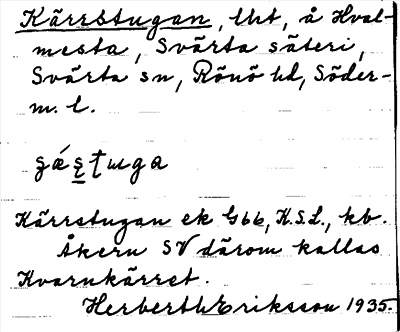 Kärrstugan, lht, å Hval-
mesta, Svärta säteri,
Svärta sn, Rönö hd, Söder-
m. l.
Kärrstugan ek G66, K.S.L., kb.
Åkern SV därom kallas
Kvarnkärret.
Herberth Eriksson 1935.